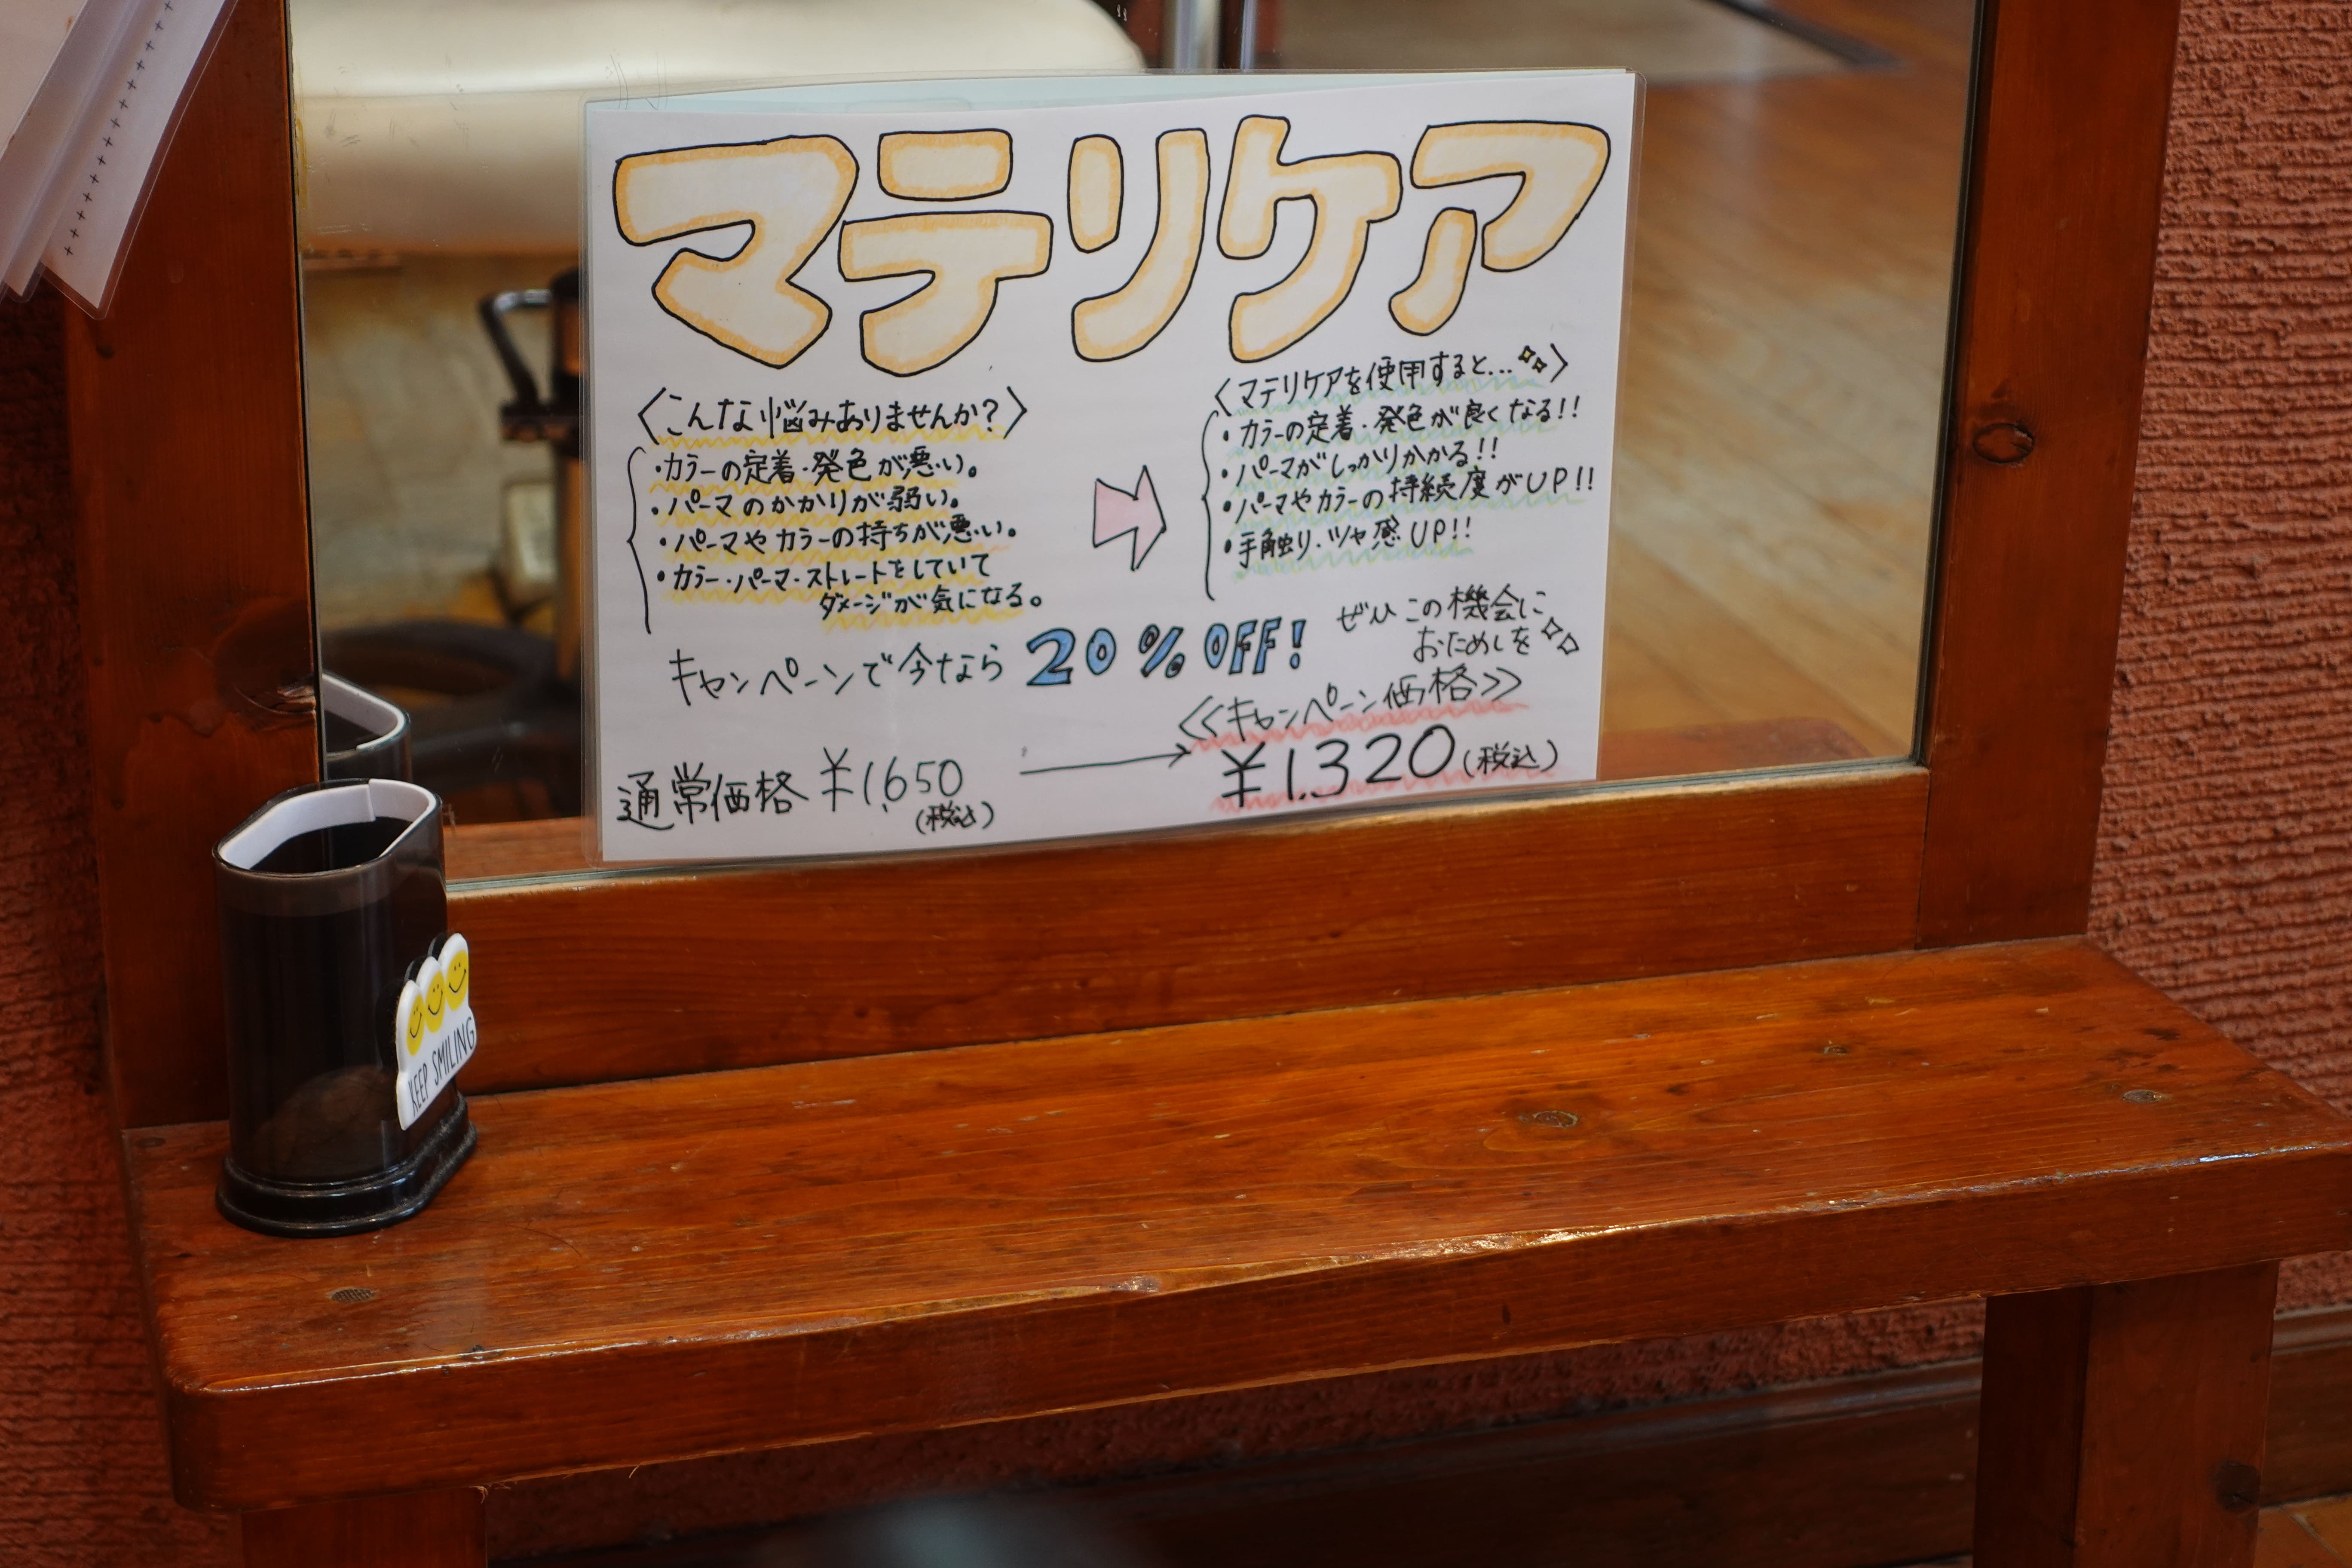 マテリケア
〈こんな悩みありませんか?〉
・カラーの定着・発色が悪い。
・パーマのかかりが弱い。
・パーマやカラーの持ちが悪い。
・カラー・パーマ・ストレートをしていて
ダメージが気になる。
〈マテリケアを使用すると...〉
・カラーの定着・発色が良くなる!!
・パーマがしっかりかかる!!
・パーマやカラーの持続度がUP!!
・手触り・ツヤ感UP!!
キャンペーンで今なら 20%OFF!
ぜひこの機会に
おためしを
通常価格 ¥1,650
(税込)
<<キャンペーン価格>>
¥1,320(税込)
KEEP SMILING